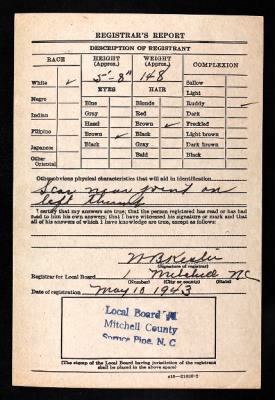 REGISTRAR'S REPORT
DESCRIPTION OF REGISTRANT
RACE HEIGHT (Approx.) WEIGHT (Approx.) COMPLEXION
5'-8" 148
White ✓ Sallow
EYES HAIR Light
Negro Blue Blonde Ruddy ✓
Indian Gray Red Dark
Hazel Brown ✓ Freckled
Filipino Brown ✓ Black Light brown
Japanese Black Gray Dark brown
Other Oriental Bald Black
Other obvious physical characteristics that will aid in identification
Scar near joint on
left thumb
I certify that my answers are true; that the person registered has read or has had
read to him his own answers; that I have witnessed his signature or mark and that
all of his answers of which I have knowledge are true, except as follows:
W B
(Signature of registrar)
Registrar for Local Board 1 Mitchell NC
(Number) (City or county) (State)
Date of registration May 10 1943
Local Board #1
Mitchell County
Spruce Pine, N. C.
(The stamp of the Local Board having jurisdiction of the registrant
shall be placed in the above space)